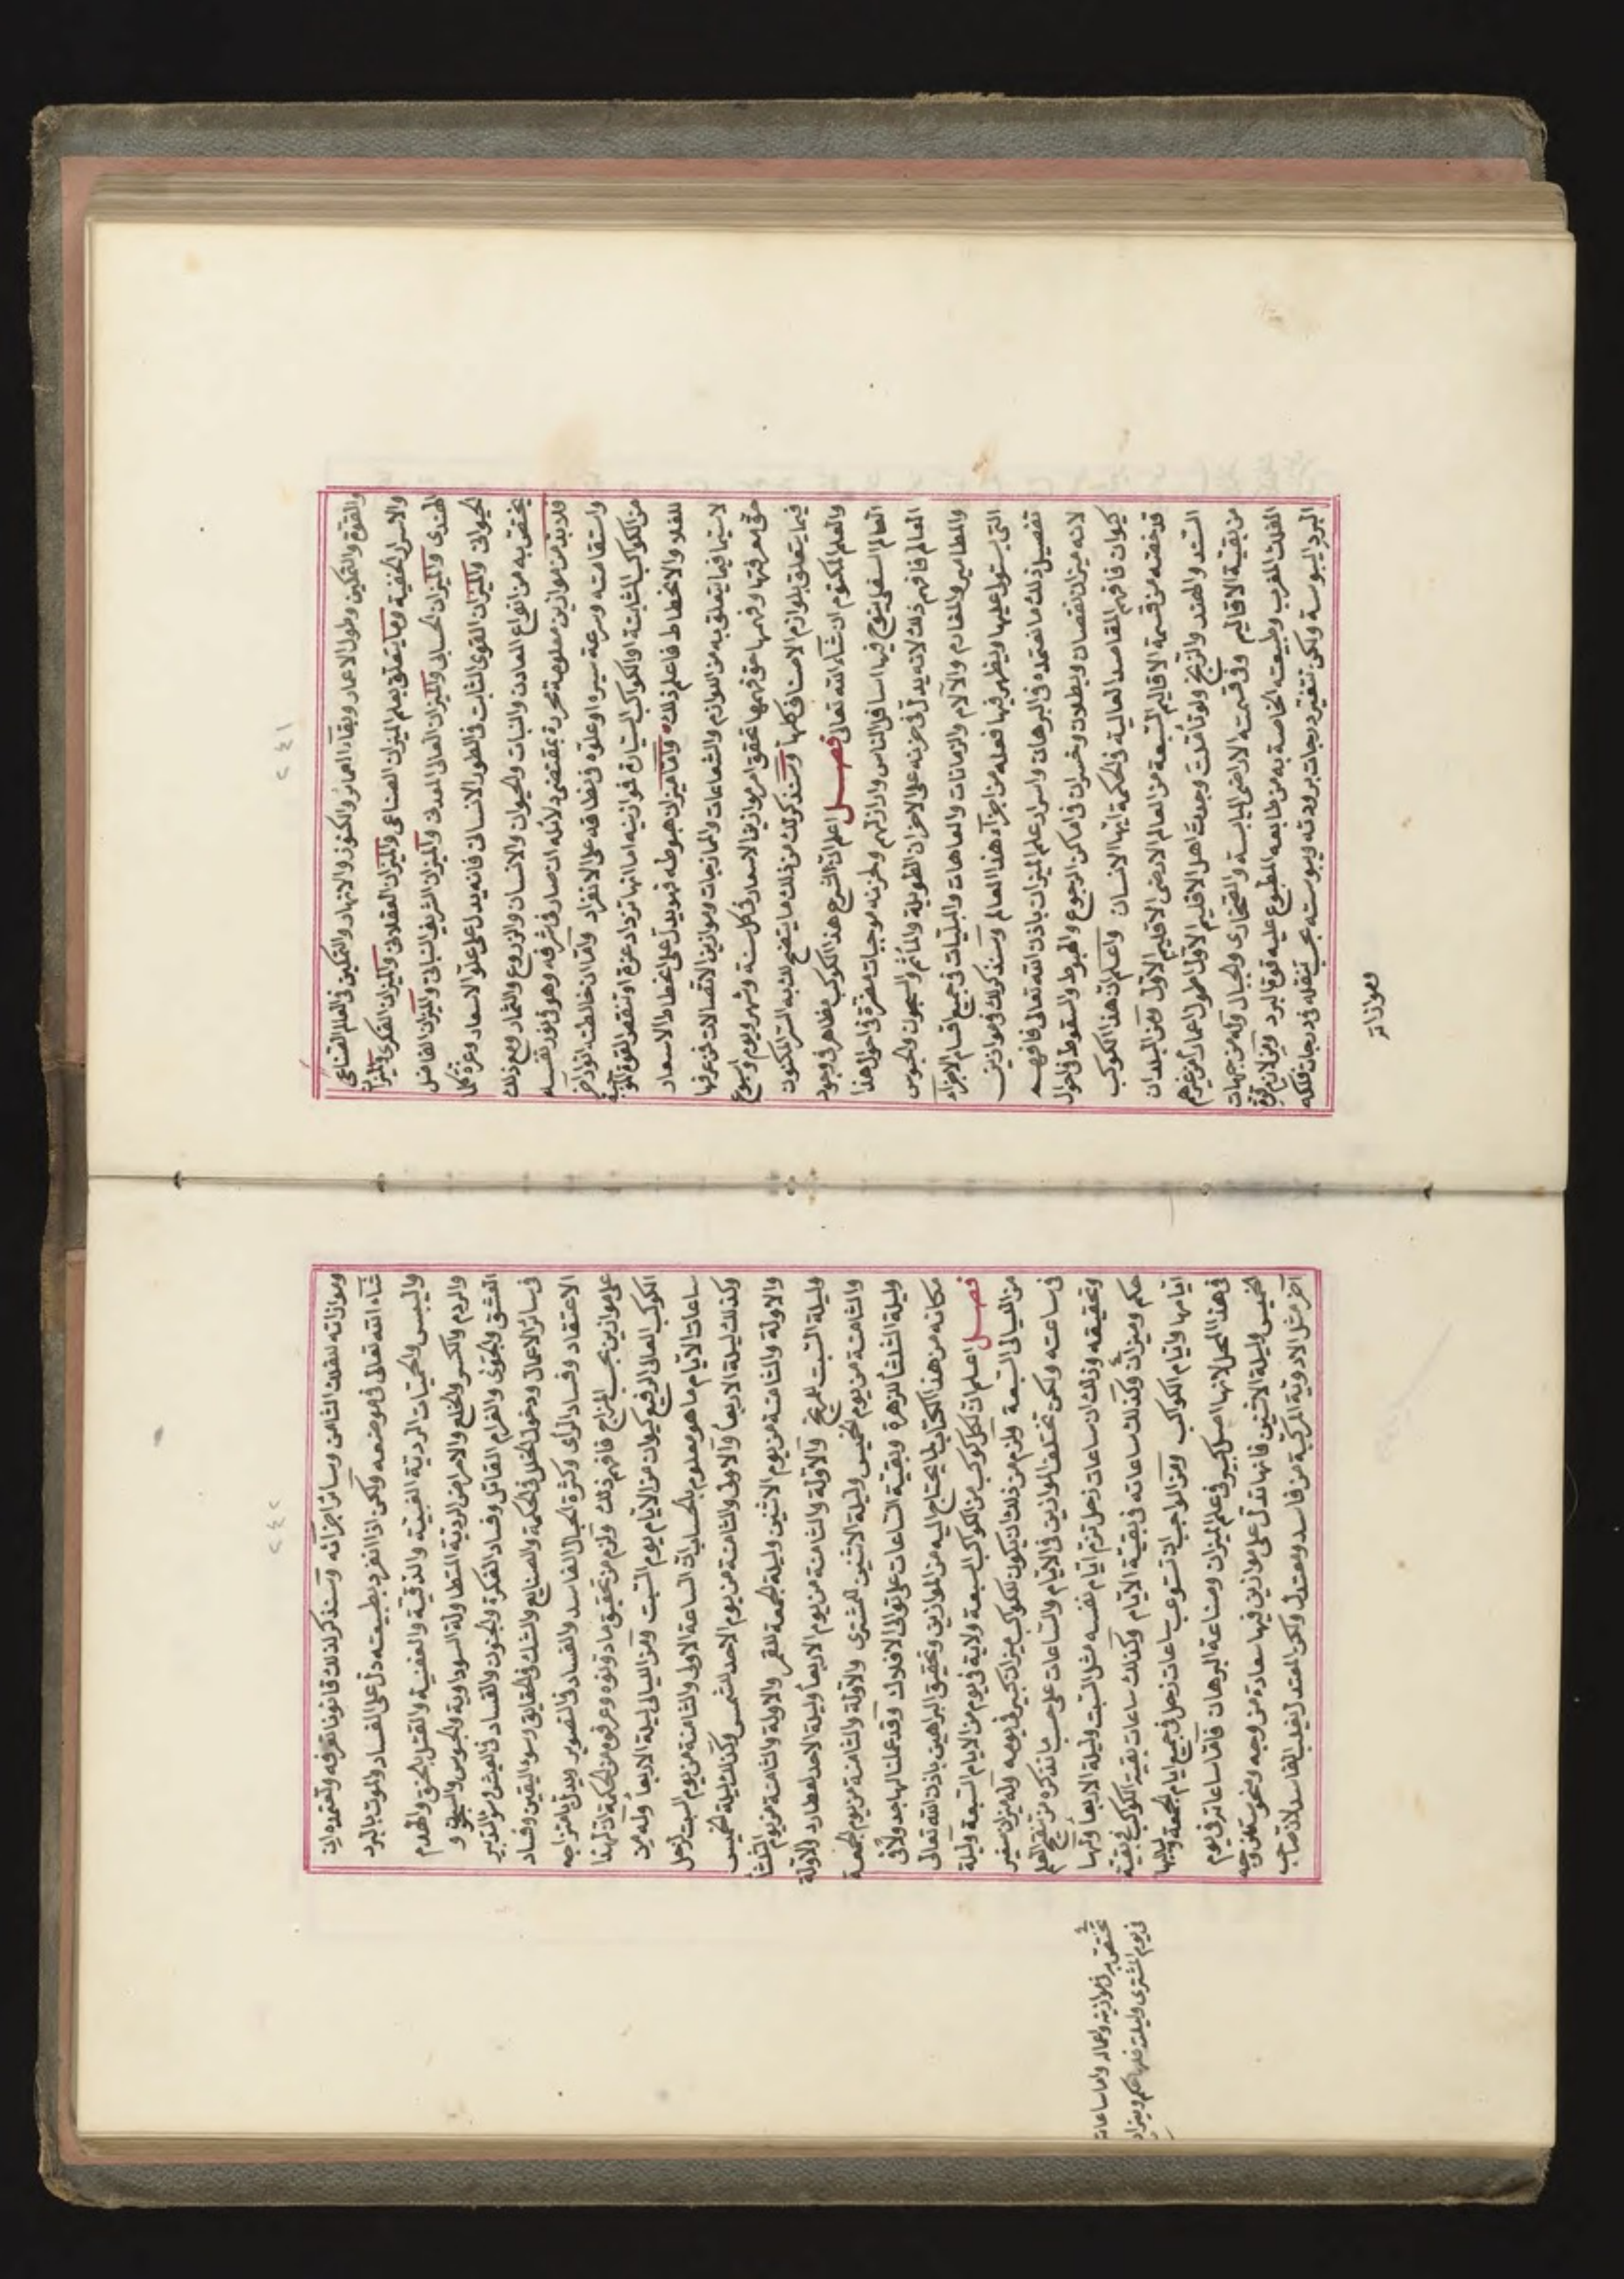 ٢٤١
والقوة والتمكين وطول الاعمار وبقاء العمائر والكنوز والانهار والتمكين فى العلم الصناعى
والاسرار الخفية وما يتعلق بعلم الميزان الصناعى والميزان العقلانى والميزان الفكرى والميزان
الهندى والميزان الحسابى والميزان العالى المعدنى والميزان الشريف النباتى والميزان الفاضل
الحيوانى والميزان القوى الثابت فى الطور الانسانى فانه يدل على علو الاسعار وعزة كلما
يختص به من انواع المعادن والنبات والحيوان والانسان والزروع والثمار ومع ذلك
فلا بد من موازين معلومة محررة بمقتضى دلائله ان صار فى شرفه وهو فى نور نفسه
واستقامته وسرعة سيره او علوه فى نطاقه على الانفراد واما ان خالطته انوار اخر
من الكواكب الثابتة او الكواكب السيارة فموازينه اما انها تزداد عزة او تنقص القوة
للغلاء والانحطاط فاعلم ذلك واما ميزان هبوطه فهو يدل على انحطاط الاسعار
لا سيما فيما يتعلق به من اللوازم والشعاعات والممازجات وموازين الاتصالات فمن عرفها
حق معرفتها وفهمها حق فهمها تحقق امر موازين الاسعار فى كل سنة وشهر ويوم واسبوع
فيما يتعلق بلوازم الاصناف كلها وسنذكر لك من ذلك ما يتضح لك به السر المكنون
والعلم المكتوم ان شاء الله تعالى فصل اعلم ان لشرح هذا الكوكب مظاهر فى وجود
العالم السفلى يتوج فيها اسافل الناس واراذلهم ولحزنه موجبات مضرة فى احوال هذا
العالم فافهم ذلك لانه يدل فى حزنه على الاحزان الطويلة والمآتم والسجون والحبوس
والمطامير والمغارم والآلام والزمانات والعاهات والبليات فى جميع اقسام الاجزاء
التى يستولى عليها ويظهر فيها فعله من اجزاء هذا العالم وسنذكر لك فى موازين
تفصيل ذلك ما نعتمده فى البرهان واسرار علم الميزان باذن الله تعالى فافهم
لانه ميزان نقصان وبطلان وخسران فى اماكن الرجوع والهبوط والسقوط فى احوال
كيوان فافهم المقاصد العالية فى الحكمة ايها الانسان واعلم ان هذا الكوكب
قد خصته من قسمة الاقاليم السبعة من العالم الارضى الاقليم الاول ومن البلدان
السند والهند والزنج ولو تأملت وجدت اهل الاقليم الاول اطول اعمارا من غيرهم
من بقية الاقاليم وفى قسمته الاراضى اليابسة والصخارى والجبال وله من جهات
الفلك المغرب وطبيعته الخاصة به من طابعه المطبوع عليه قوة البرد وميزان قوة
البرد اليبوسة ولكن تتغير درجات برودته ويبوسته بحسب تنقله فى درجات فلكه
وموازاته
٢٤٢
وموازاته للفلك الثامن وسائر اجزائه وسنذكر لك قانونا تعرفه وتعتمده ان
شاء الله تعالى فى موضعه ولكن اذا انفرد بطبيعته دل على الفساد والموت بالبرد
واليبس والحميات الردية الغبية والدقية والعفنية والقتل بالخنق والهدم
والردم والكسر والخلع والامراض الردية المتطاولة السوداوية والحبوس والسجون و
العشق والجوى والغرام القاتل وفساد الفكرة والجنون والفساد فى العيش وسوء التدبير
فى سائر الاعمال ودخول الخلل فى الحكمة والصنايع والشك فى الحقايق وسوء اليقين وفساد
الاعتقاد وفساد الرأى وكثرة الخيال الفاسد والفساد فى التصوير ويدل بامتزاجه
على موازين بحسب المزاج فافهم ذلك ولزم من تحقيق ما دونوه وعرفوه من الحكمة ان لهذا
الكوكب العالى الرفيع كيوان من الايام يوم السبت ومن الليالى ليلة الاربعا وله من
ساعات الايام ما هو معلوم بالحساب ان الساعة الاولى والثامنة من يوم السبت لزحل
وكذلك ليلة الاربعا والاولى والثامنة من يوم الاحد للشمس وكذلك ليلة الخميس
والاولة والثامنة من يوم الاثنين وليلة الجمعة للقمر والاولة والثامنة من يوم الثلثا
وليلة السبت للمريخ والاولة والثامنة من يوم الاربعا وليلة الاحد لعطارد والاولة
والثامنة من يوم الخميس وليلة الاثنين للمشترى والاولة والثامنة من يوم الجمعة
وليلة الثلثا للزهرة وبقية الساعات على توالى الافلاك وقد عملنا لها جدولا فى
مكانه من هذا الكتاب لما يحتاج اليه من الموازين وتحقيق البراهين باذن الله تعالى
فصل اعلم ان لكل كوكب من الكواكب السبعة ولاية فى يوم من الايام السبعة وليلة
من الليالى السبعة ولزم من ذلك ان يكون للكواكب ميزان كبير فى يومه وله ميزان صغير
فى ساعته ولكن تختلف الموازين فى الايام والساعات على حسب ما نذكره من نتيجة العلم
وتحقيقه وذلك ان ساعات زحل تلزم ايام نفسه مثل السبت وليلة الاربعا ولها
حكم وميزان وكذلك ساعاته فى بقية الايام وكذلك ساعات بقية الكواكب فى بقية
ايامها وايام الكواكب ومن الواجب ان تستوعب ساعات زحل فى جميع ايام الجمعة ولياليها
فى هذا المحل لانها اصل كبير فى علم الميزان وصناعة البرهان فاما ساعاته فى يوم
الخميس وليلة الاثنين فانها تدل على موازين فيها سعادة من وجه ونحوسة من وجه
آخر مثل الادوية المركبة من فاسد ومعتدل ولكن المعتدل يغلب الفاسد لان صاحب
تختص به فى موازينه واعماله واما ساعاته
فى يوم المشترى وليلته فلها حكم وميزان